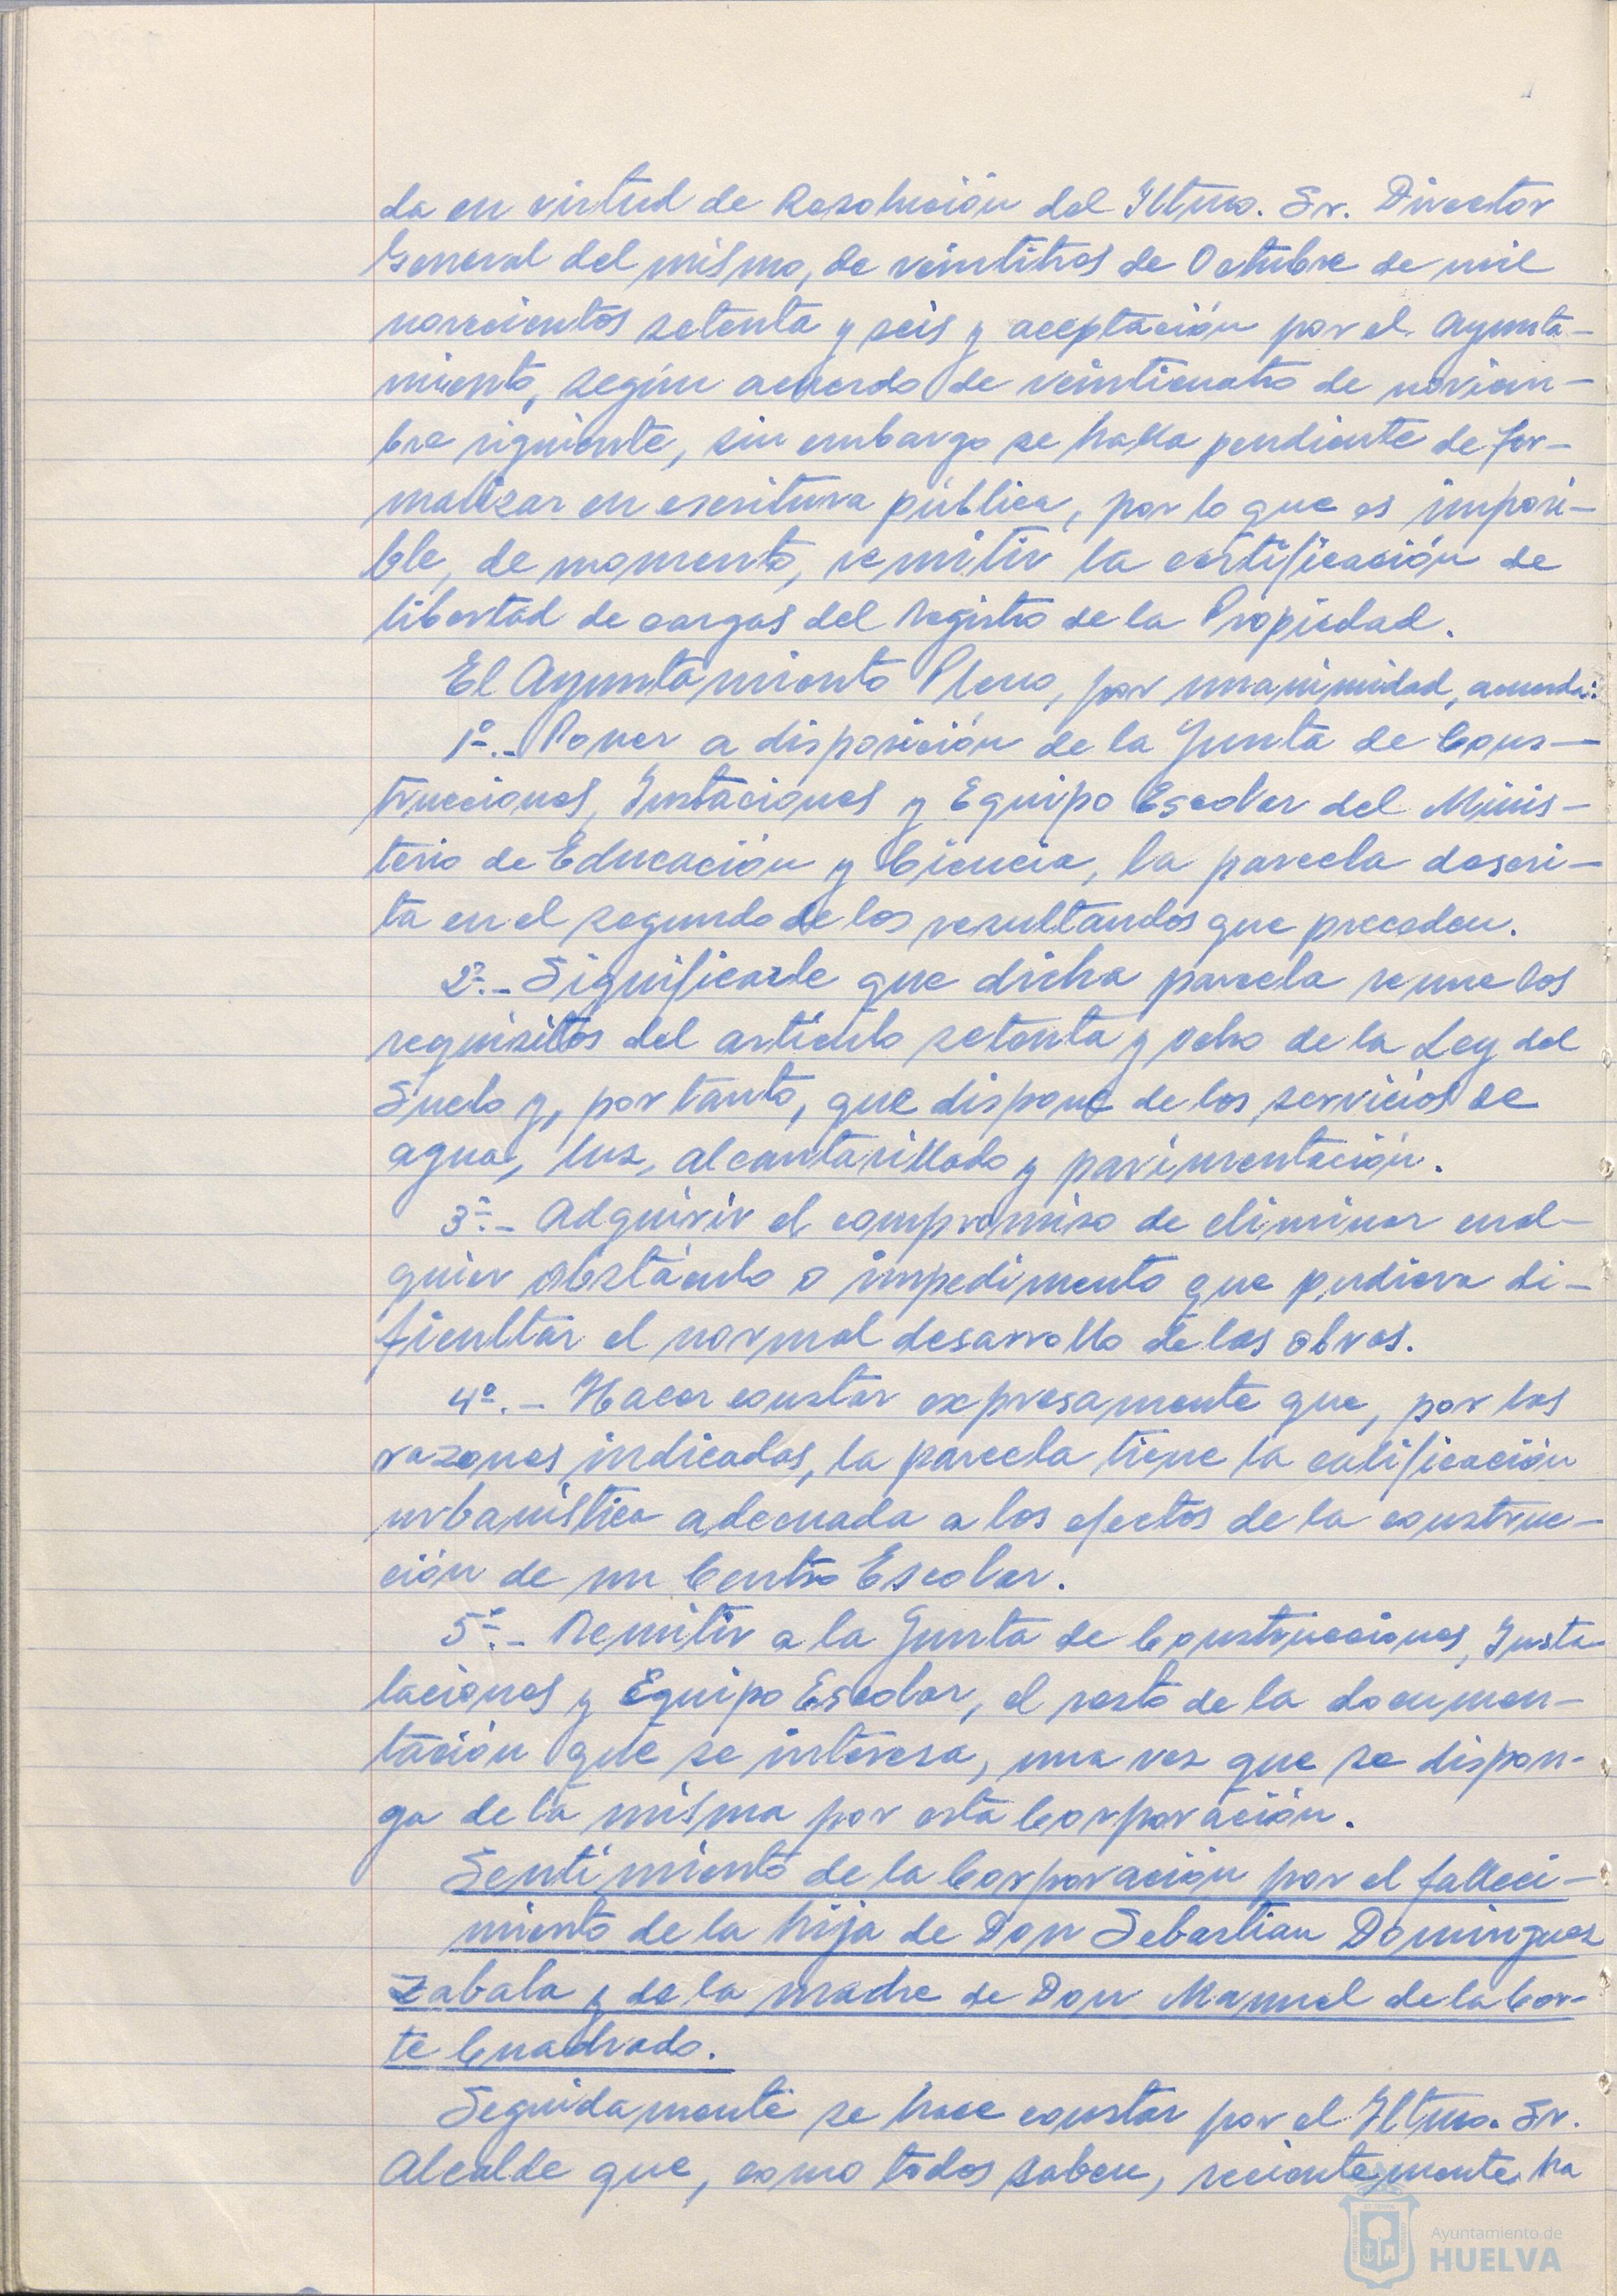 da en virtud de Resolución del Iltmo. Sr. Director
General del mismo, de veintitres de Octubre de mil
novecientos setenta y seis y aceptación por el Ayunta-
miento, según acuerdo de veinticuatro de noviem-
bre siguiente, sin embargo se halla pendiente de for-
malizar en escritura pública, por lo que es imposi-
ble, de momento, remitir la certificación de
libertad de cargas del Registro de la Propiedad.
El Ayuntamiento Pleno, por unanimidad, acuerda:
1º.- Poner a disposición de la Junta de Cons-
trucciones, Instaciones y Equipo Escolar del Minis-
terio de Educación y Ciencia, la parcela descri-
ta en el segundo de los resultandos que preceden.
2º.- Significarle que dicha parcela reune los
requisitos del artículo setenta y ocho de la Ley del
Suelo y, por tanto, que dispone de los servicios de
agua, luz, alcantarillado y pavimentación.
3º.- Adquirir el compromiso de eliminar cual-
quier obstáculo o impedimento que pudiera di-
ficultar el normal desarrollo de las obras.
4º.- Hacer constar expresamente que, por las
razones indicadas, la parcela tiene la calificación
urbanística adecuada a los efectos de la construc-
ción de un Centro Escolar.
5º.- Remitir a la Junta de Construcciones, Insta-
laciones y Equipo Escolar, el resto de la documen-
tación que se interesa, una vez que se dispon-
ga de la misma por esta Corporación.
Sentimiento de la Corporación por el falleci-
miento de la hija de Don Sebastian Dominguez
Zabala y de la madre de Don Manuel de la Cor-
te Cuadrado.
Seguidamente se hace constar por el Iltmo. Sr.
Alcalde que, como todos saben, recientemente ha
Ayuntamiento de
HUELVA